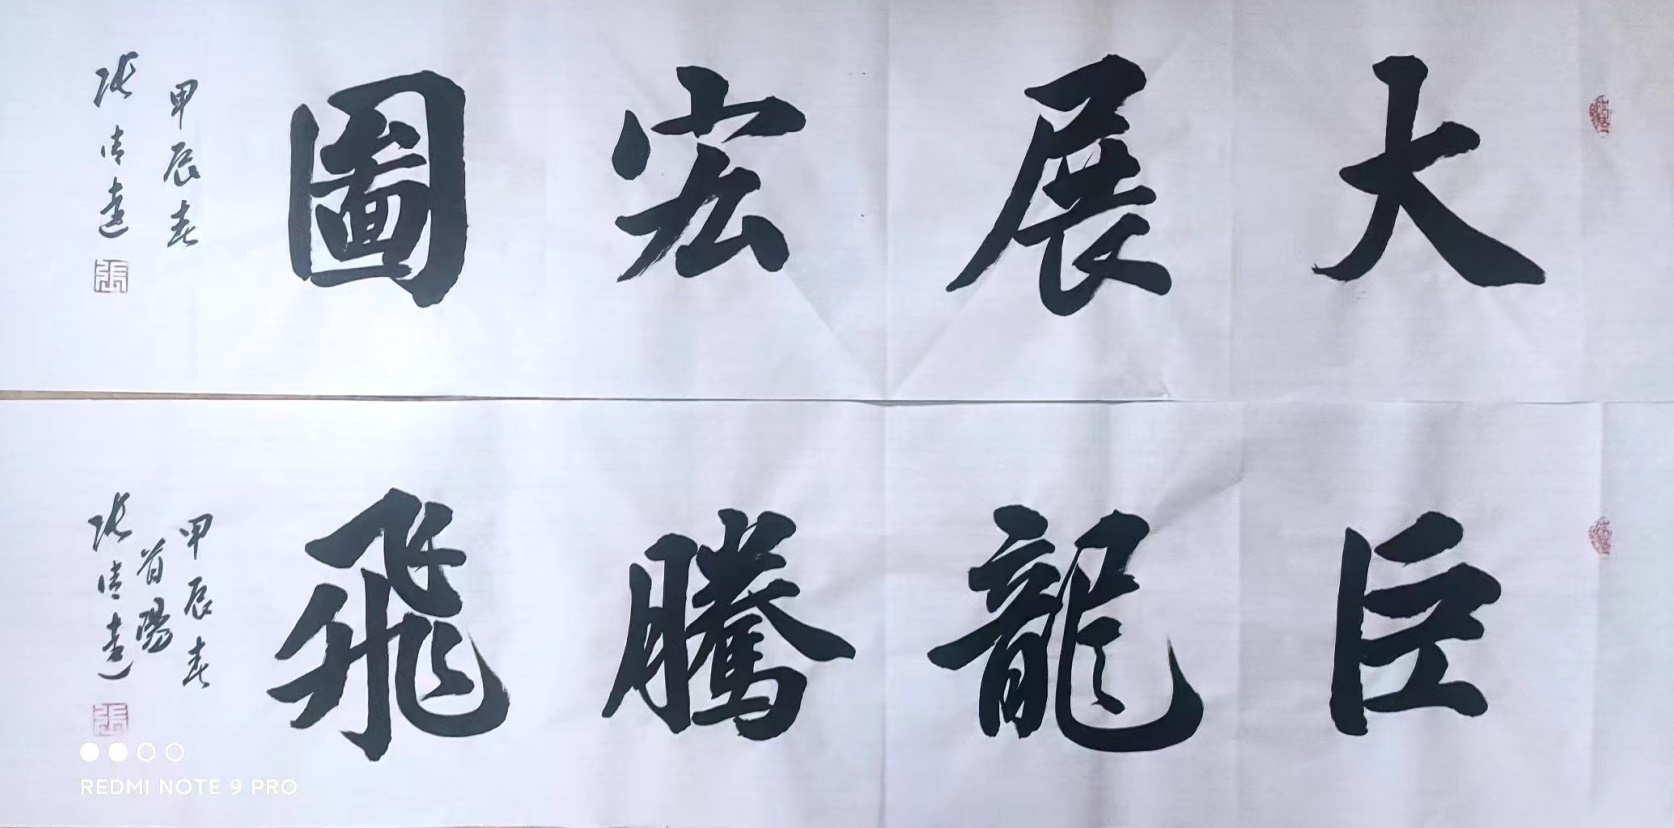 大展宏圖
甲辰春
張清遠
張
巨龍騰飛
甲辰春
首陽
張清遠
張
REDMI NOTE 9 PRO